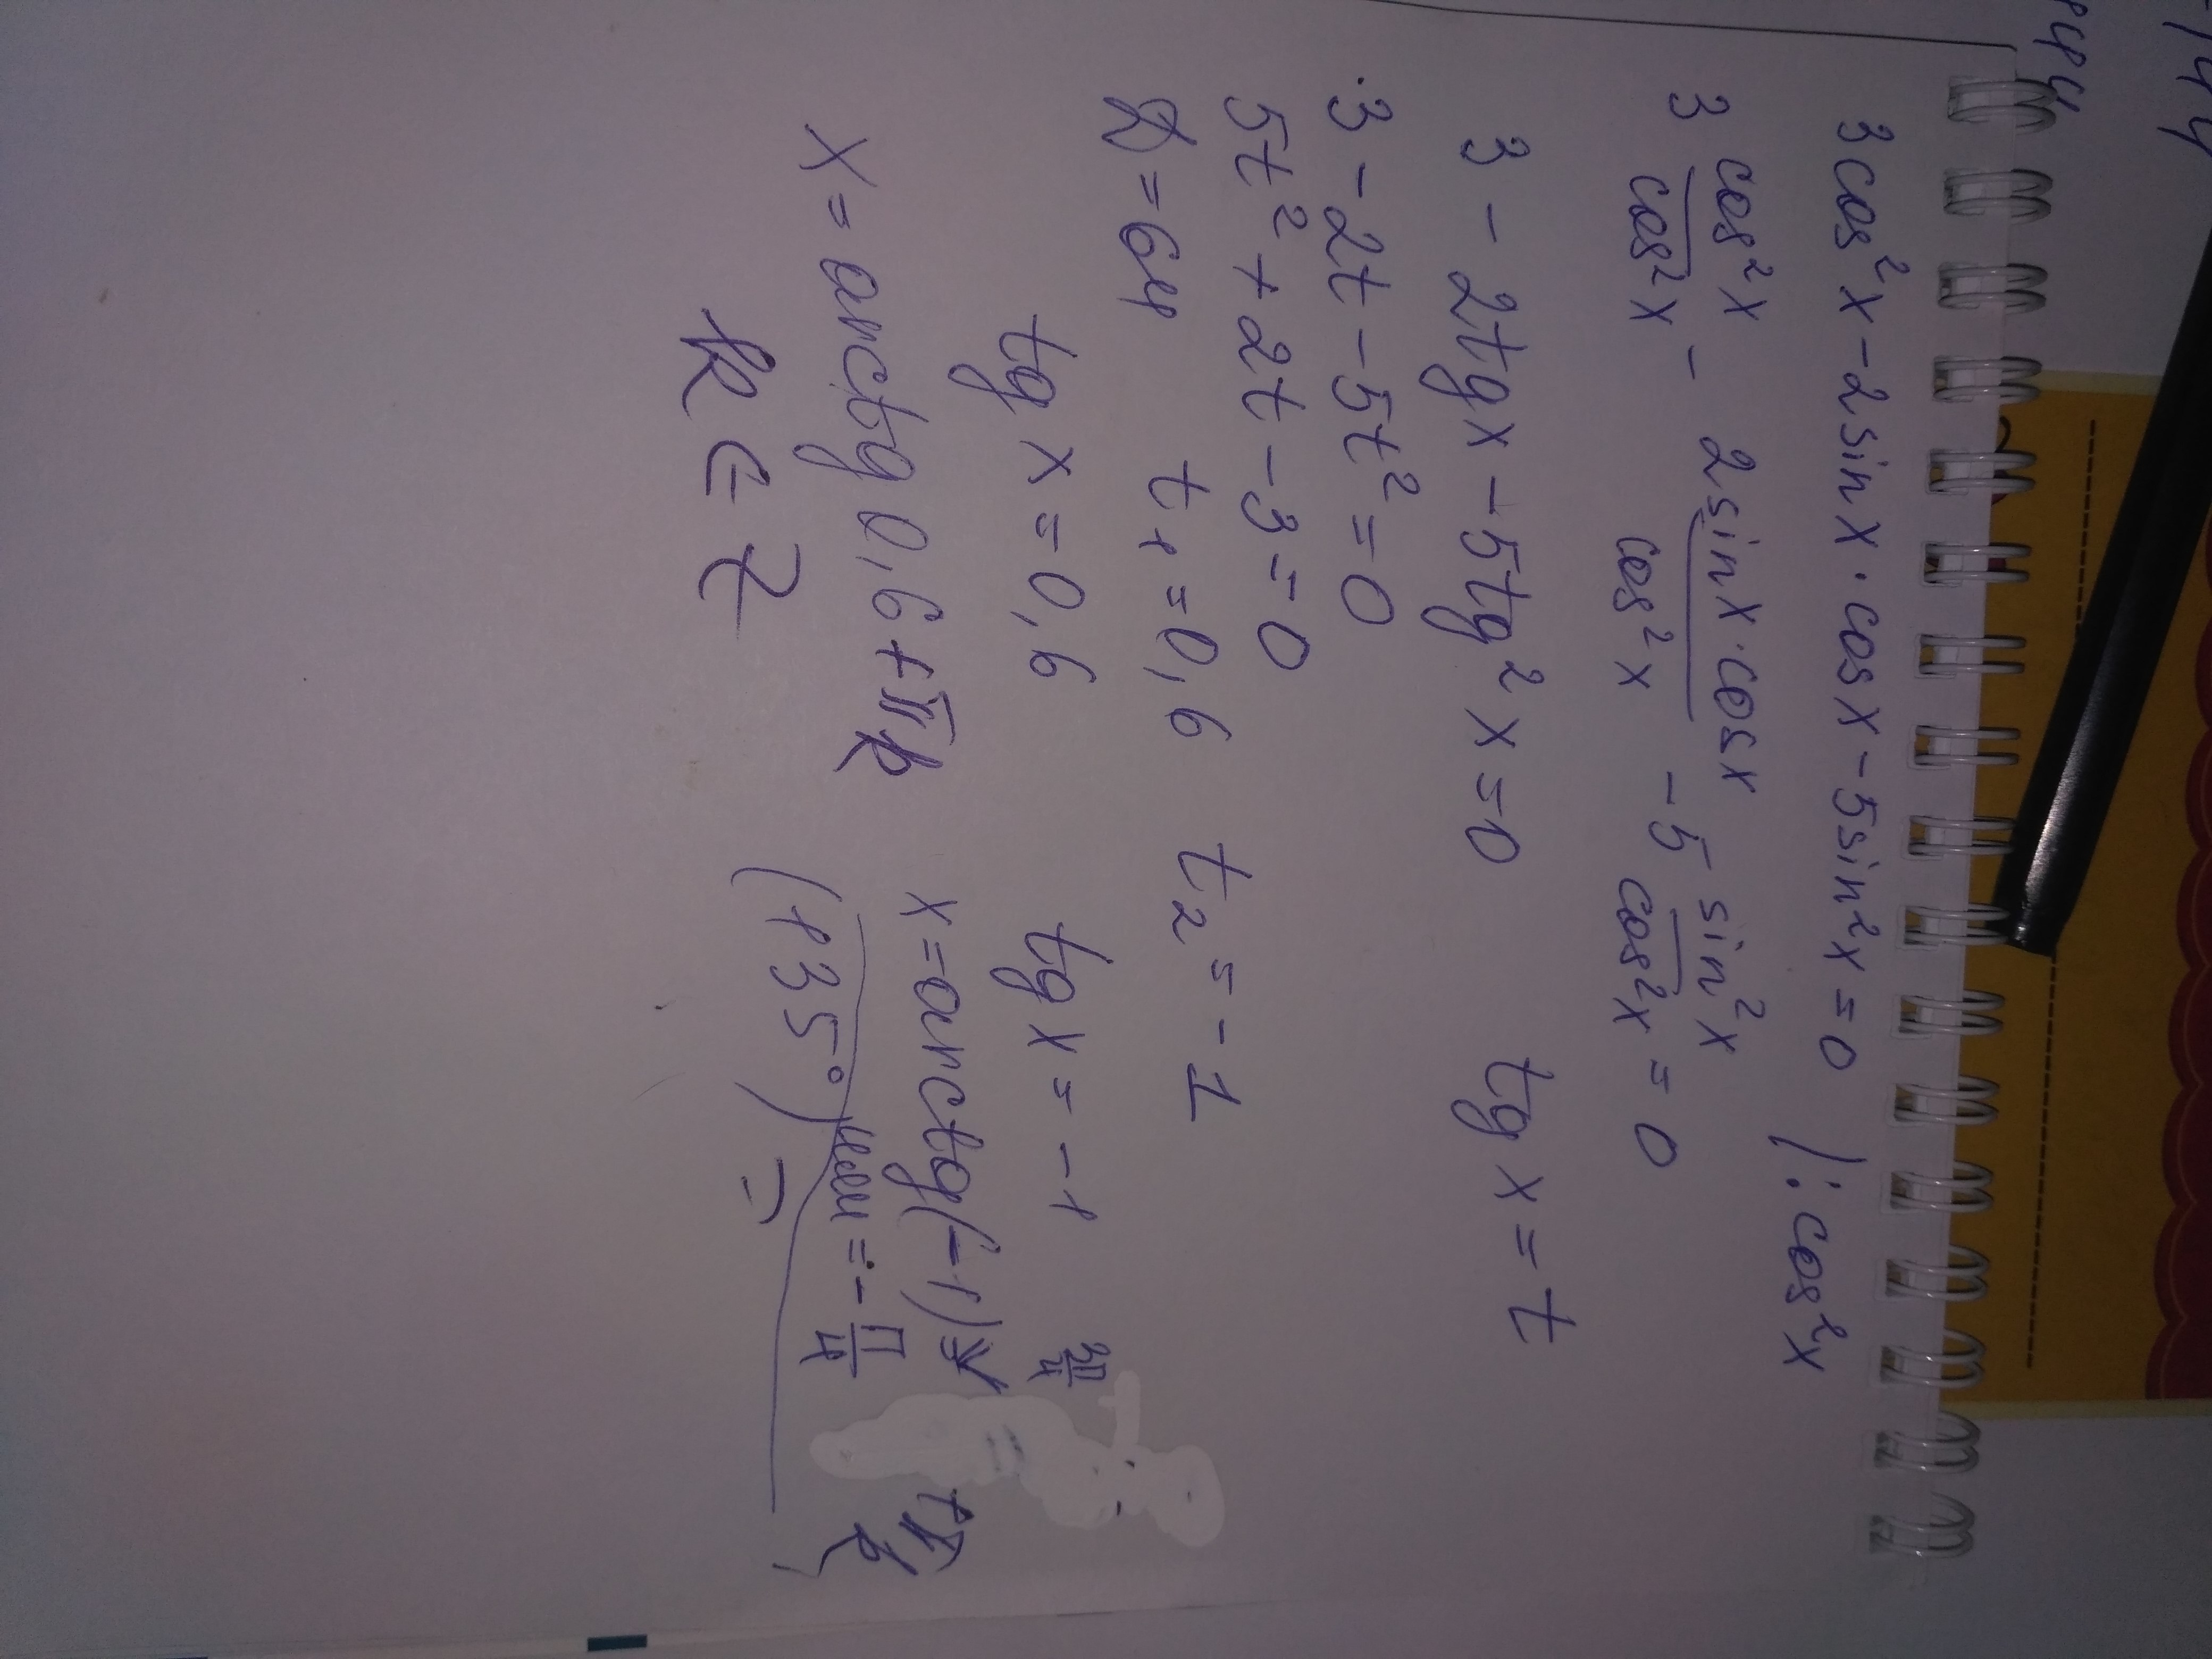 3cos²x-2sinx·cosx-5sin²x=0 /:cos²x
3 cos²x/cos²x - 2sinx·cosx/cos²x -5 sin²x/cos²x = 0
3 - 2tgx - 5tg²x=0 tgx=t
3-2t-5t²=0
5t²+2t-3=0
D=64 t₁=0,6 t₂=-1
tgx=0,6 tgx=-1 3π/4
x=arctg0,6+πk x=arctg(-1) +πk
или = -π/4
k∈Z (135°) =